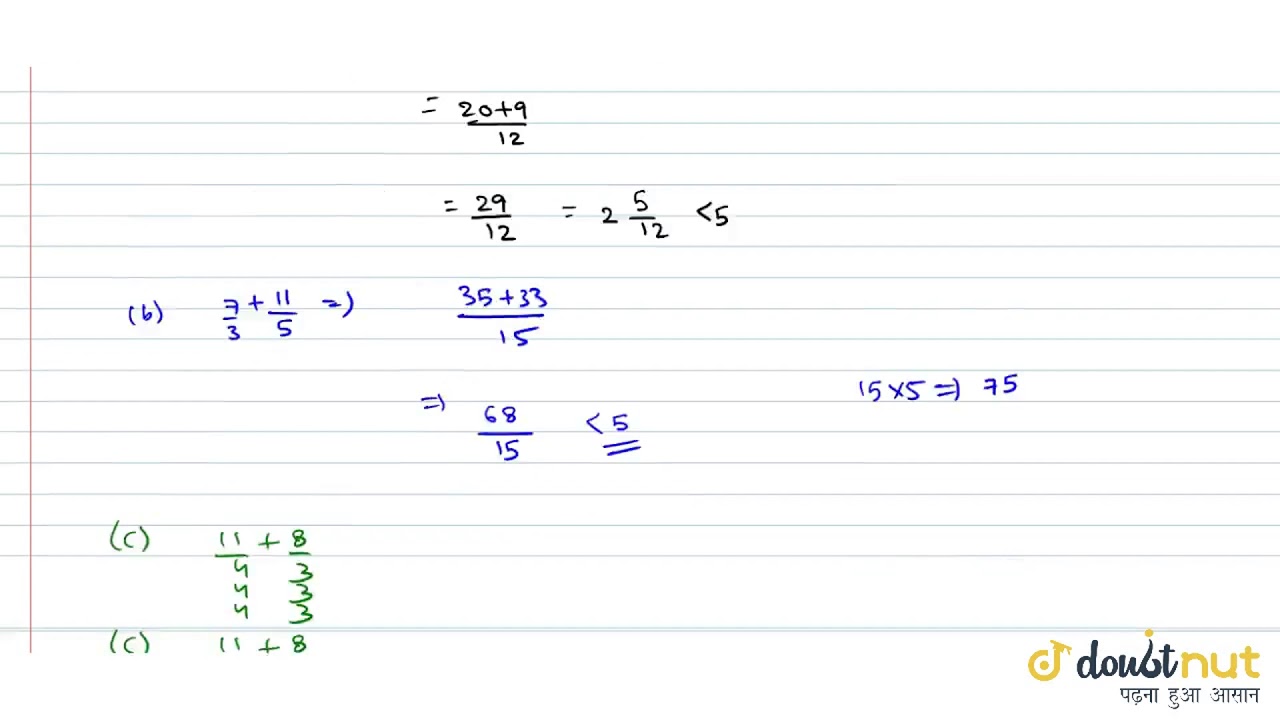 = 20+9
12
= 29/12 = 2 5/12 < 5
(b) 7/3 + 11/5 => 35+33
15
15×5 => 75
=> 68/15 < 5
(c) 11 + 8
4 3
4 3
4 3
(c) 11 + 8
doubtnut
पढ़ना हुआ आसान